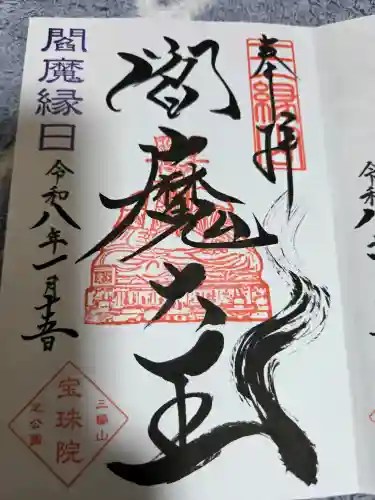 奉拝
閻魔大王
閻魔縁日
令和八年一月十五日
三縁山
宝珠院
芝公園